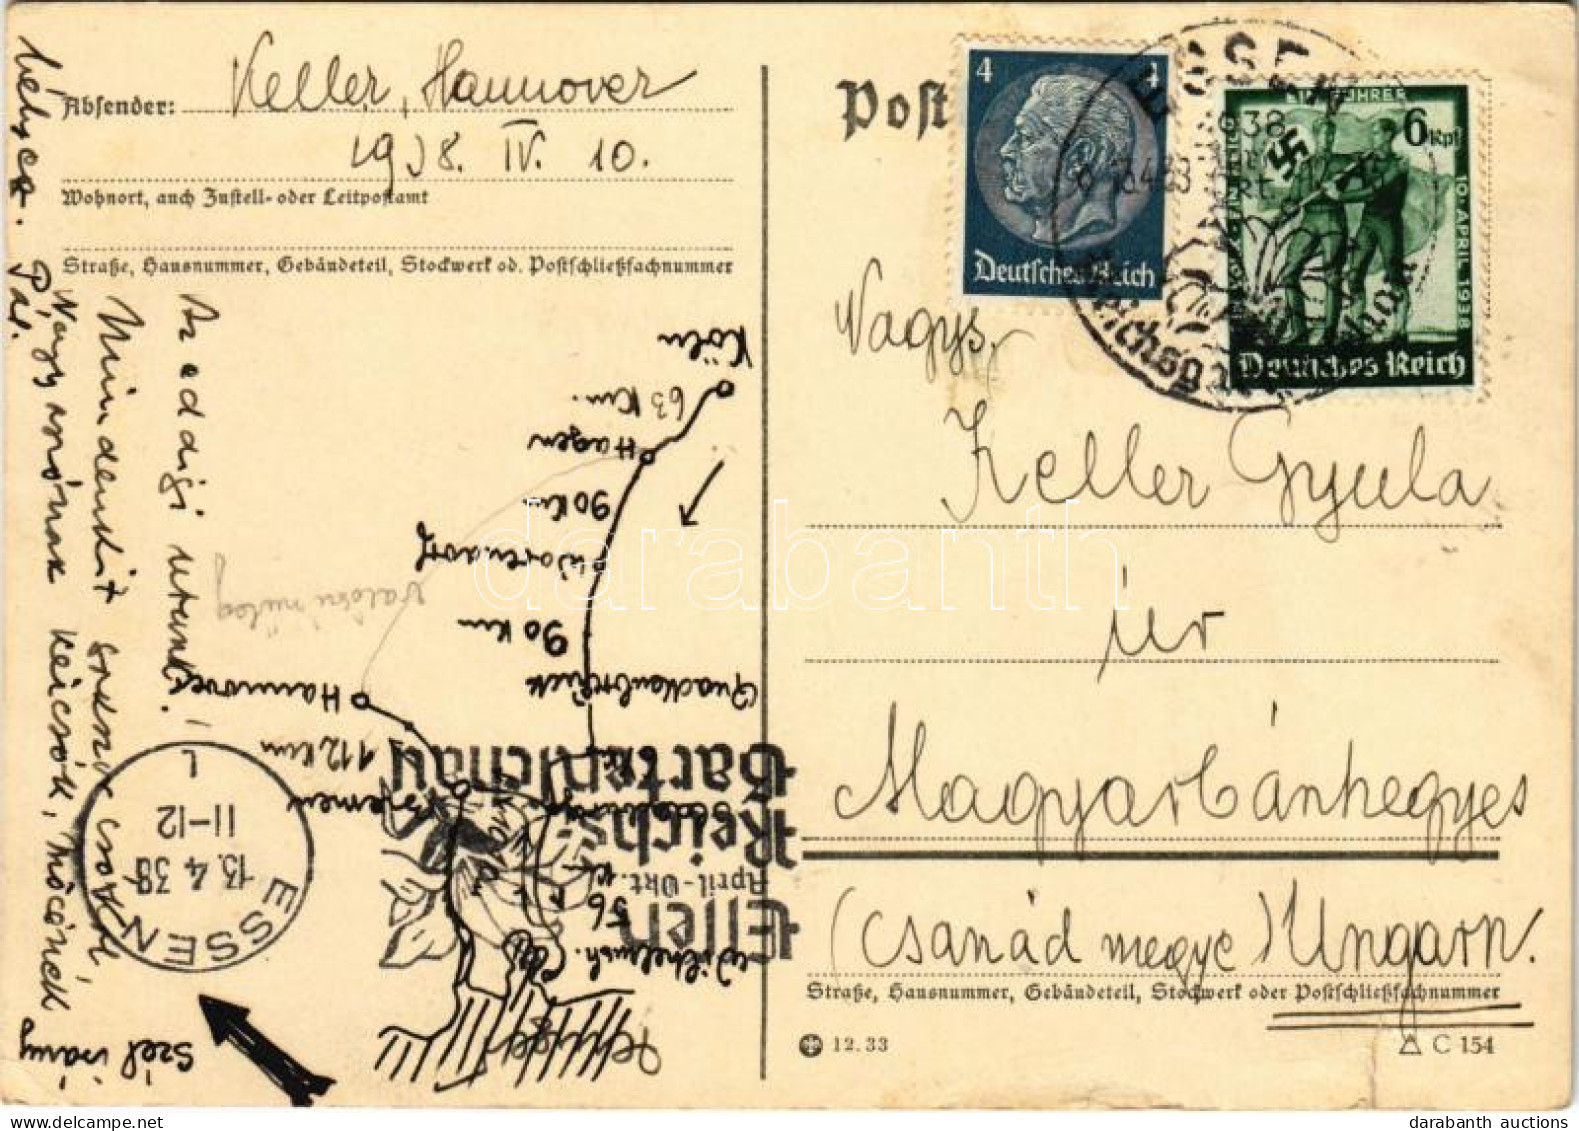 Absender: Keller, Hannover
1938. IV. 10.
Wohnort, auch Zustell- oder Leitpostamt
Straße, Hausnummer, Gebäudeteil, Stockwerk od. Postschließfachnummer
Post
4 4
Deutsches Reich
6 Rpf
10. APRIL 1938
Deutsches Reich
ESSEN
Nagys.
Keller Gyula
úr
Magyarbánhegyes
(Csanád megye) Ungarn.
Straße, Hausnummer, Gebäudeteil, Stockwerk oder Postschließfachnummer
12.33
C 154
Az eddigi utunk!
Mindenkit sokszor csókol
Nagy anyónak kézcsók,
Pál.
Köln
63 Km.
Hagen
90 Km
90 Km
Hannover
112 Km
Bremen
Wilhelmsh.
56
Szél irány
Essen
April-Okt.
Reichs-
Gartenschau
ESSEN
13.4.38
11-12
L
darabanth
darabanth auctions
www.darabanth.com